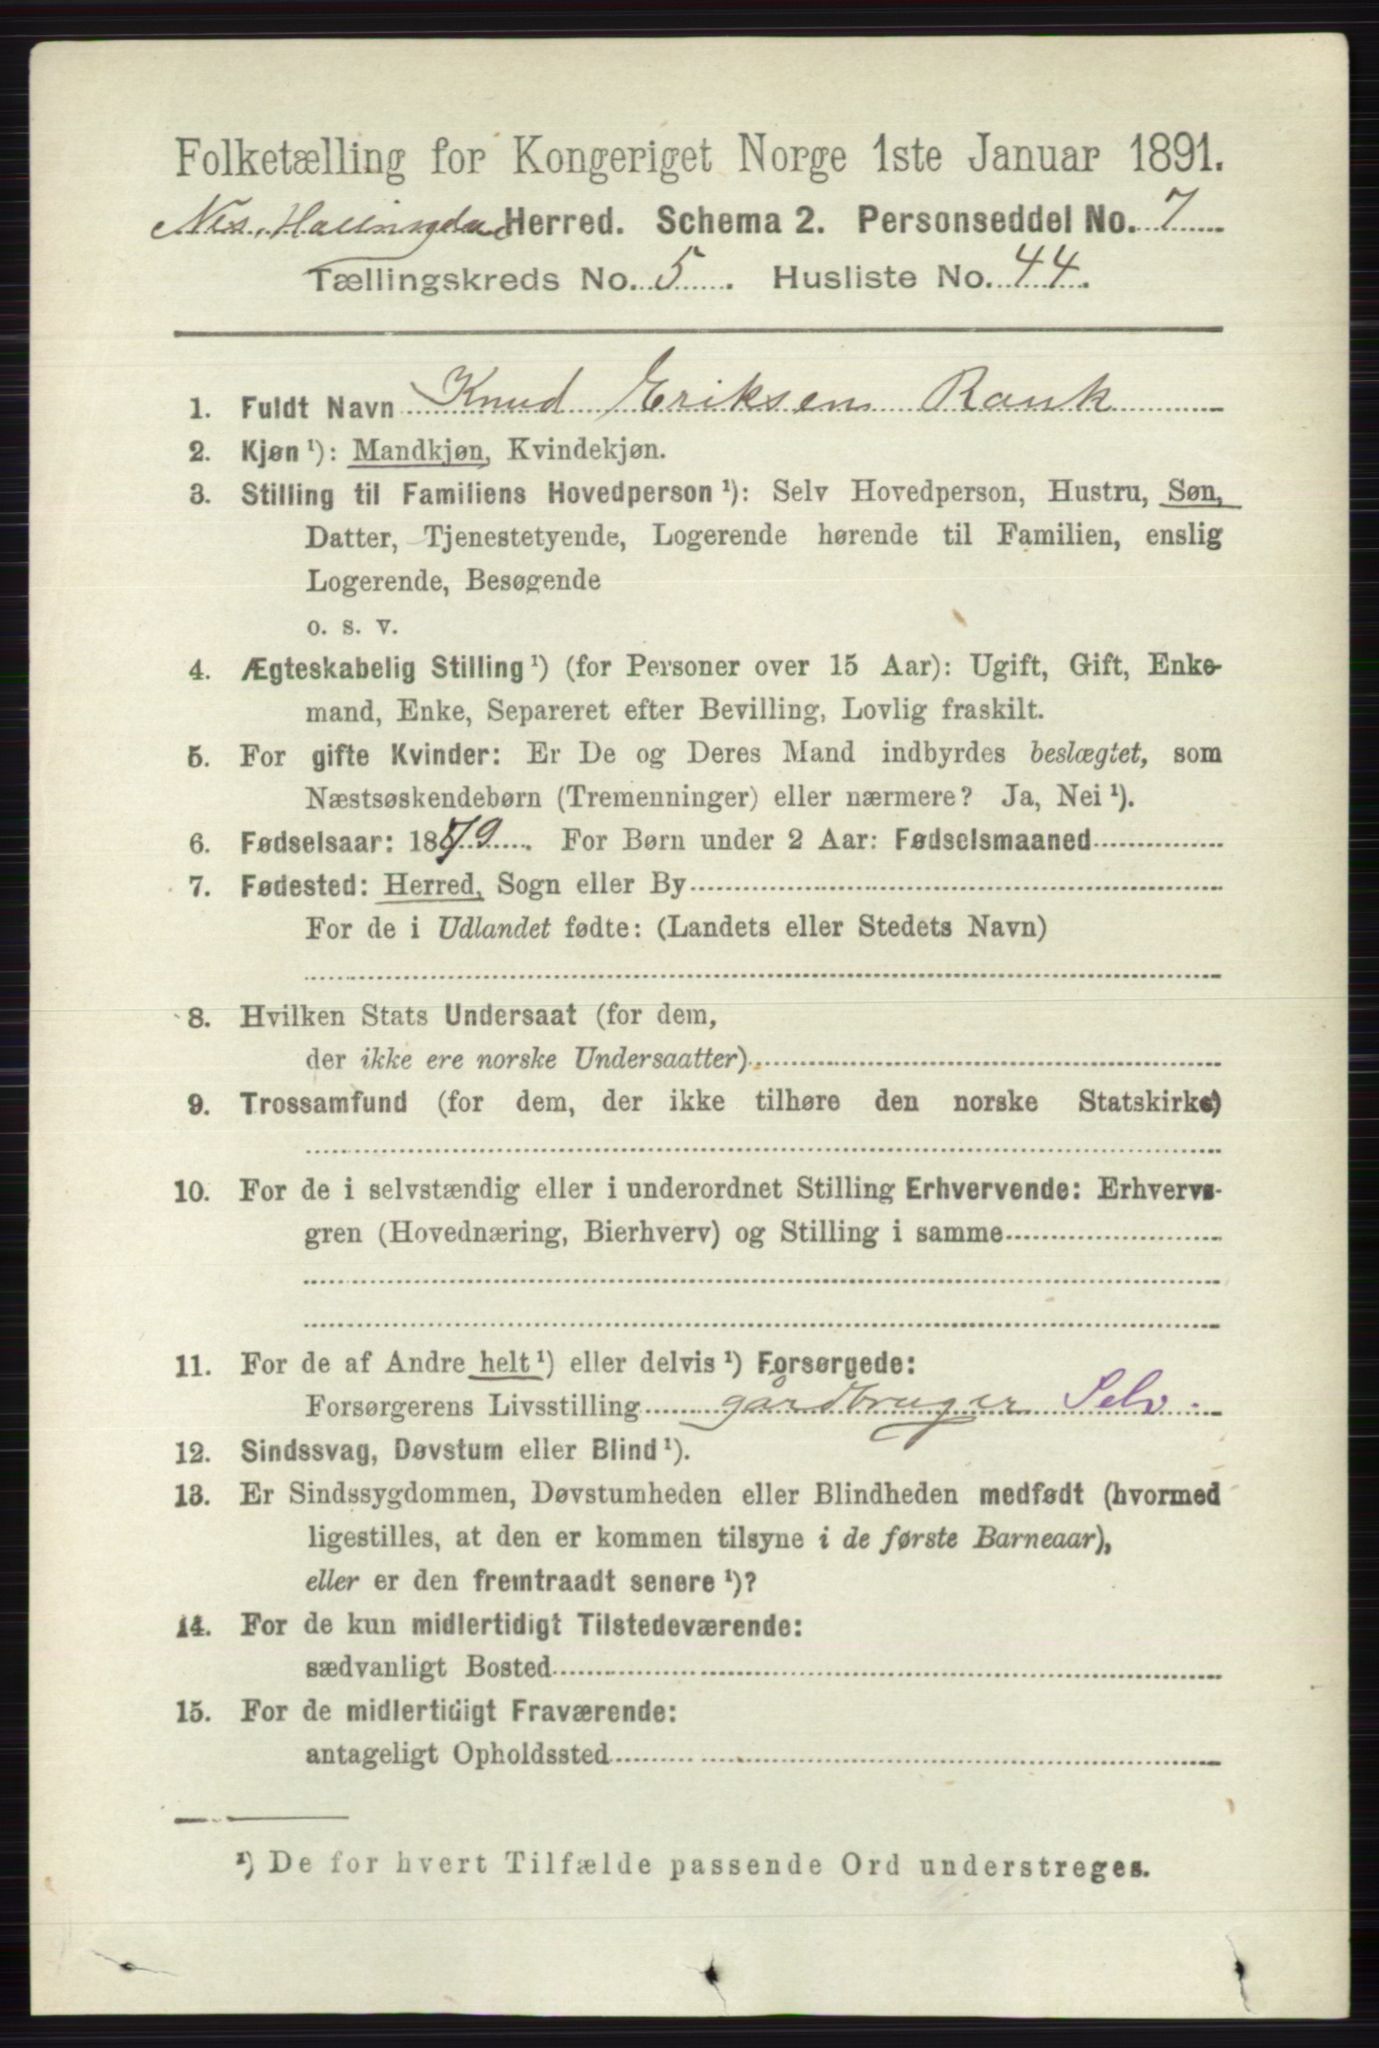 Folketælling for Kongeriget Norge 1ste Januar 1891.
Nes, Hallingdal Herred. Schema 2. Personseddel No. 7
Tællingskreds No. 5. Husliste No. 44.
1. Fuldt Navn Knud Eriksen Rauk
2. Kjøn ¹): Mandkjøn, Kvindekjøn.
3. Stilling til Familiens Hovedperson ¹): Selv Hovedperson, Hustru, Søn,
Datter, Tjenestetyende, Logerende hørende til Familien, enslig
Logerende, Besøgende
o. s. v.
4. Ægteskabelig Stilling ¹) (for Personer over 15 Aar): Ugift, Gift, Enke-
mand, Enke, Separeret efter Bevilling, Lovlig fraskilt.
5. For gifte Kvinder: Er De og Deres Mand indbyrdes beslægtet, som
Næstsøskendebørn (Tremenninger) eller nærmere? Ja, Nei ¹).
6. Fødselsaar: 1879. For Børn under 2 Aar: Fødselsmaaned
7. Fødested: Herred, Sogn eller By
For de i Udlandet fødte: (Landets eller Stedets Navn)
8. Hvilken Stats Undersaat (for dem,
der ikke ere norske Undersaatter)
9. Trossamfund (for dem, der ikke tilhøre den norske Statskirke)
10. For de i selvstændig eller i underordnet Stilling Erhvervende: Erhvervs-
gren (Hovednæring, Bierhverv) og Stilling i samme
11. For de af Andre helt ¹) eller delvis ¹) Forsørgede:
Forsørgerens Livsstilling gårdbruger Selv.
12. Sindssvag, Døvstum eller Blind ¹).
13. Er Sindssygdommen, Døvstumheden eller Blindheden medfødt (hvormed
ligestilles, at den er kommen tilsyne i de første Barneaar),
eller er den fremtraadt senere ¹)?
14. For de kun midlertidigt Tilstedeværende:
sædvanligt Bosted
15. For de midlertidigt Fraværende:
antageligt Opholdssted
¹) De for hvert Tilfælde passende Ord understreges.